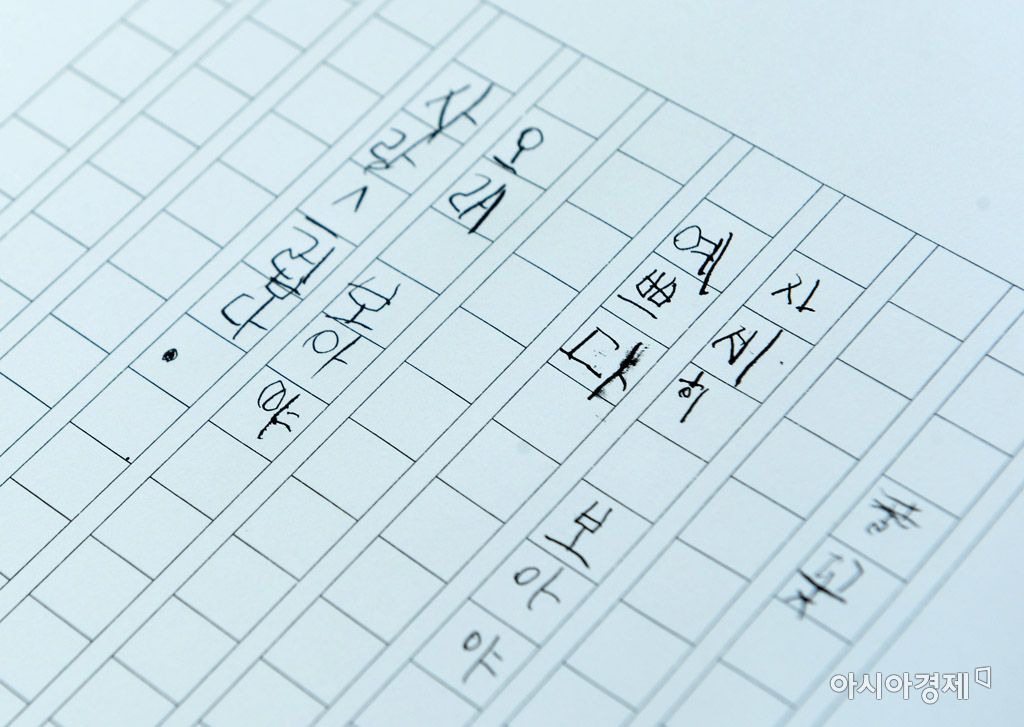 풀꽃
자세히 보아야
예쁘다
오래 보아야
사랑스럽다.
아시아경제